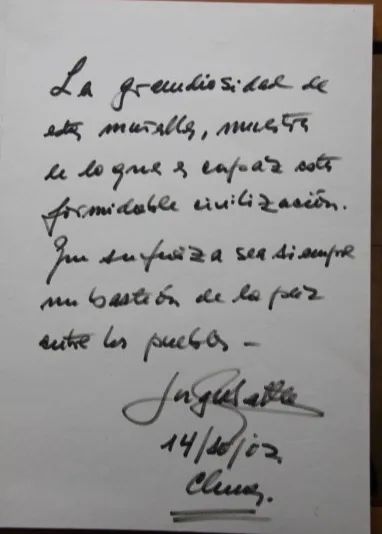 La grandiosidad de
esta muralla, muestra
de lo que es capaz esta
formidable civilización.
Que su fuerza sea siempre
un bastión de la paz
entre los pueblos –
Jorge Batlle
14/10/02.
China.